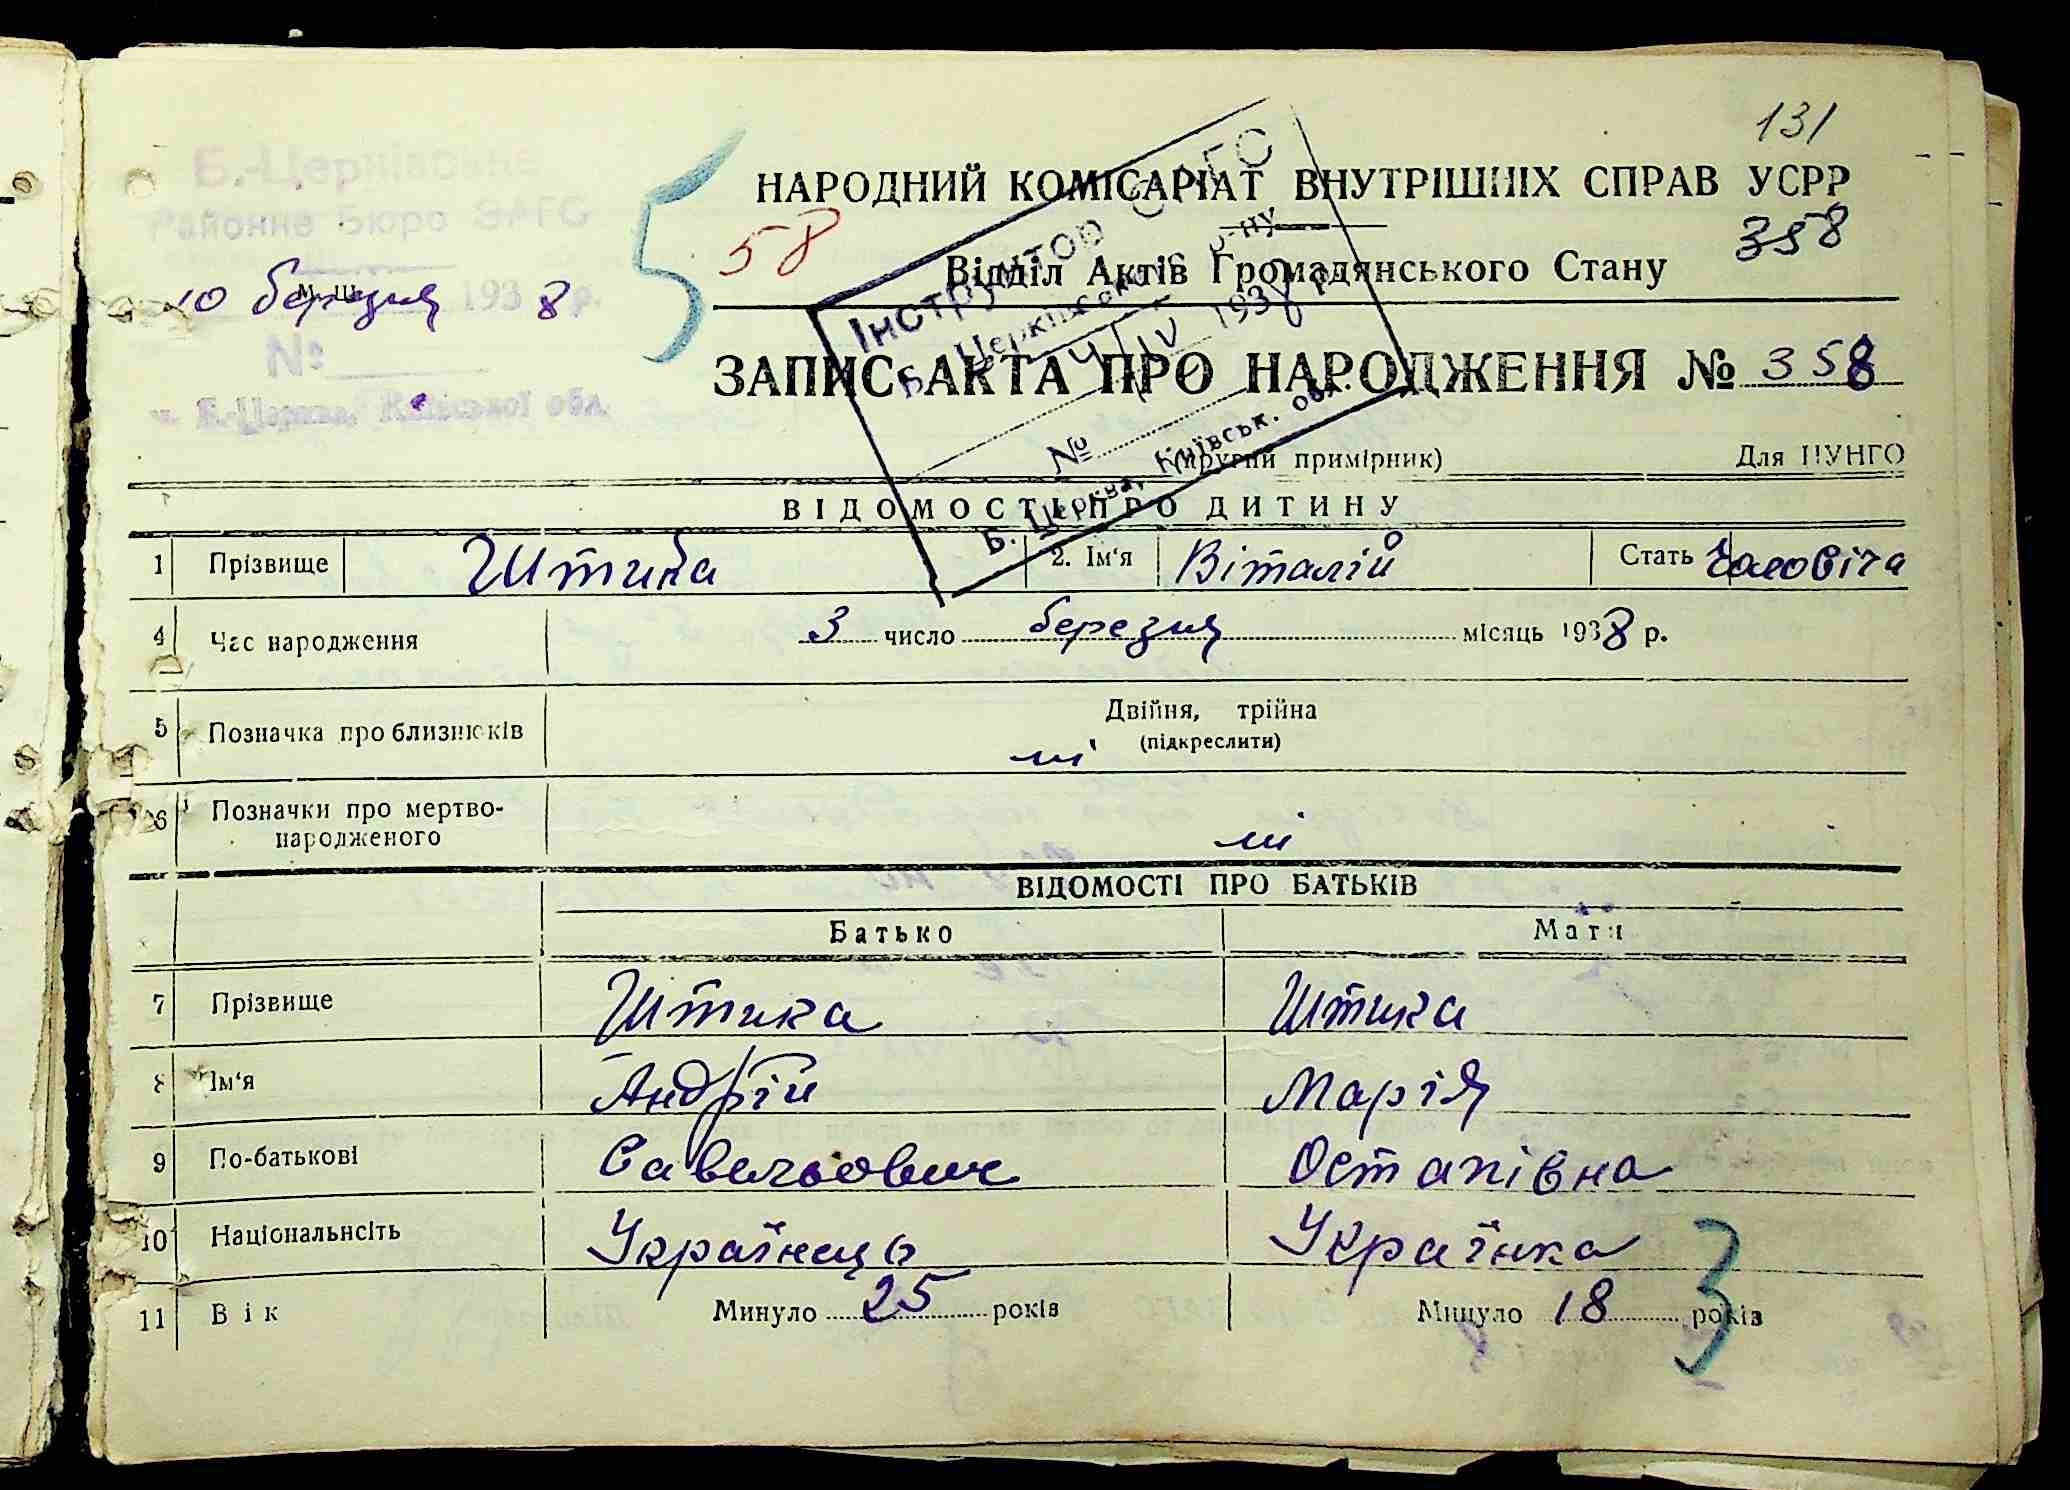 131
Б.-Церківське
Районне Бюро ЗАГС
10 березня 1938 р.
№
м. Б.-Церква, Київської обл.
5
58
НАРОДНИЙ КОМІСАРІАТ ВНУТРІШНІХ СПРАВ УСРР
358
Відділ Актів Громадянського Стану
Інструктор ЗАГС
Б. Церківського р-ну
4/IV 1938 р.
№
Б. Церква, Київськ. обл.
ЗАПИС АКТА ПРО НАРОДЖЕННЯ № 358
(другий примірник) Для ЦУНГО
ВІДОМОСТІ ПРО ДИТИНУ
1 Прізвище Штика 2. Ім'я Віталій Стать Чоловіча
4 Час народження 3 число березня місяць 1938 р.
5 Позначка про близнюків Двійня, трійна
(підкреслити)
ні
6 Позначки про мертво-
народженого ні
ВІДОМОСТІ ПРО БАТЬКІВ
Батько Мати
7 Прізвище Штика Штика
8 Ім'я Андрій Марія
9 По-батькові Савельович Остапівна
10 Національнсіть Українець Українка
11 Вік Минуло 25 років Минуло 18 років
3